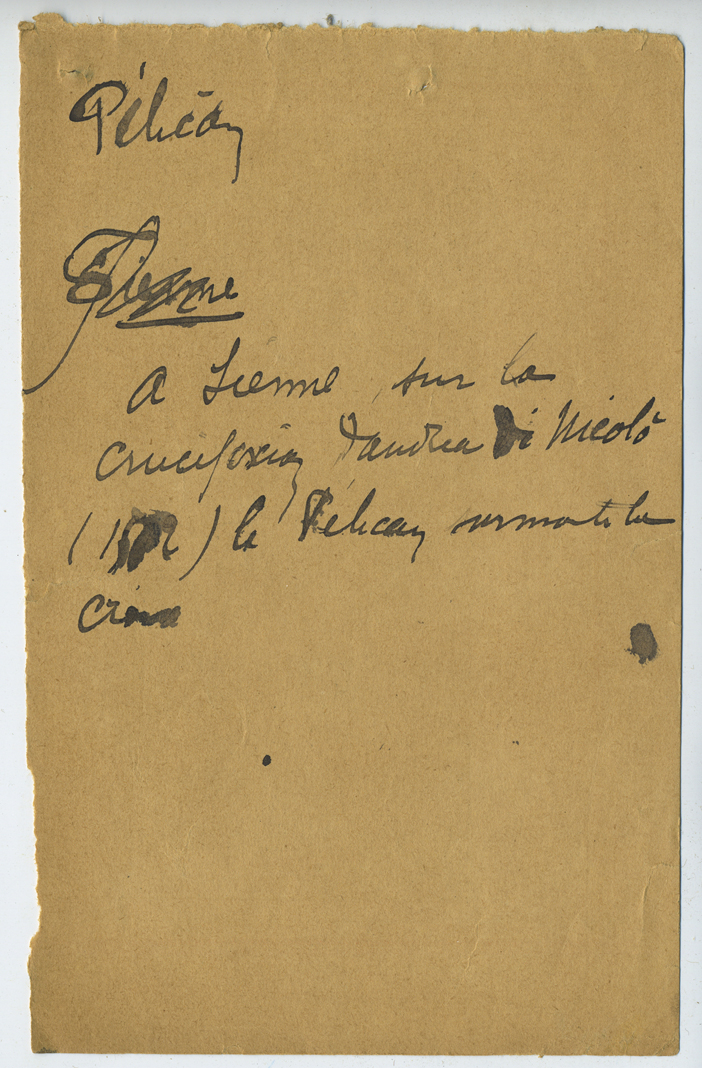 Pélican
Sienne
A Sienne, sur la
crucifixion d'andrea di Nicolò
( ) le Pélican surmonte la
croix